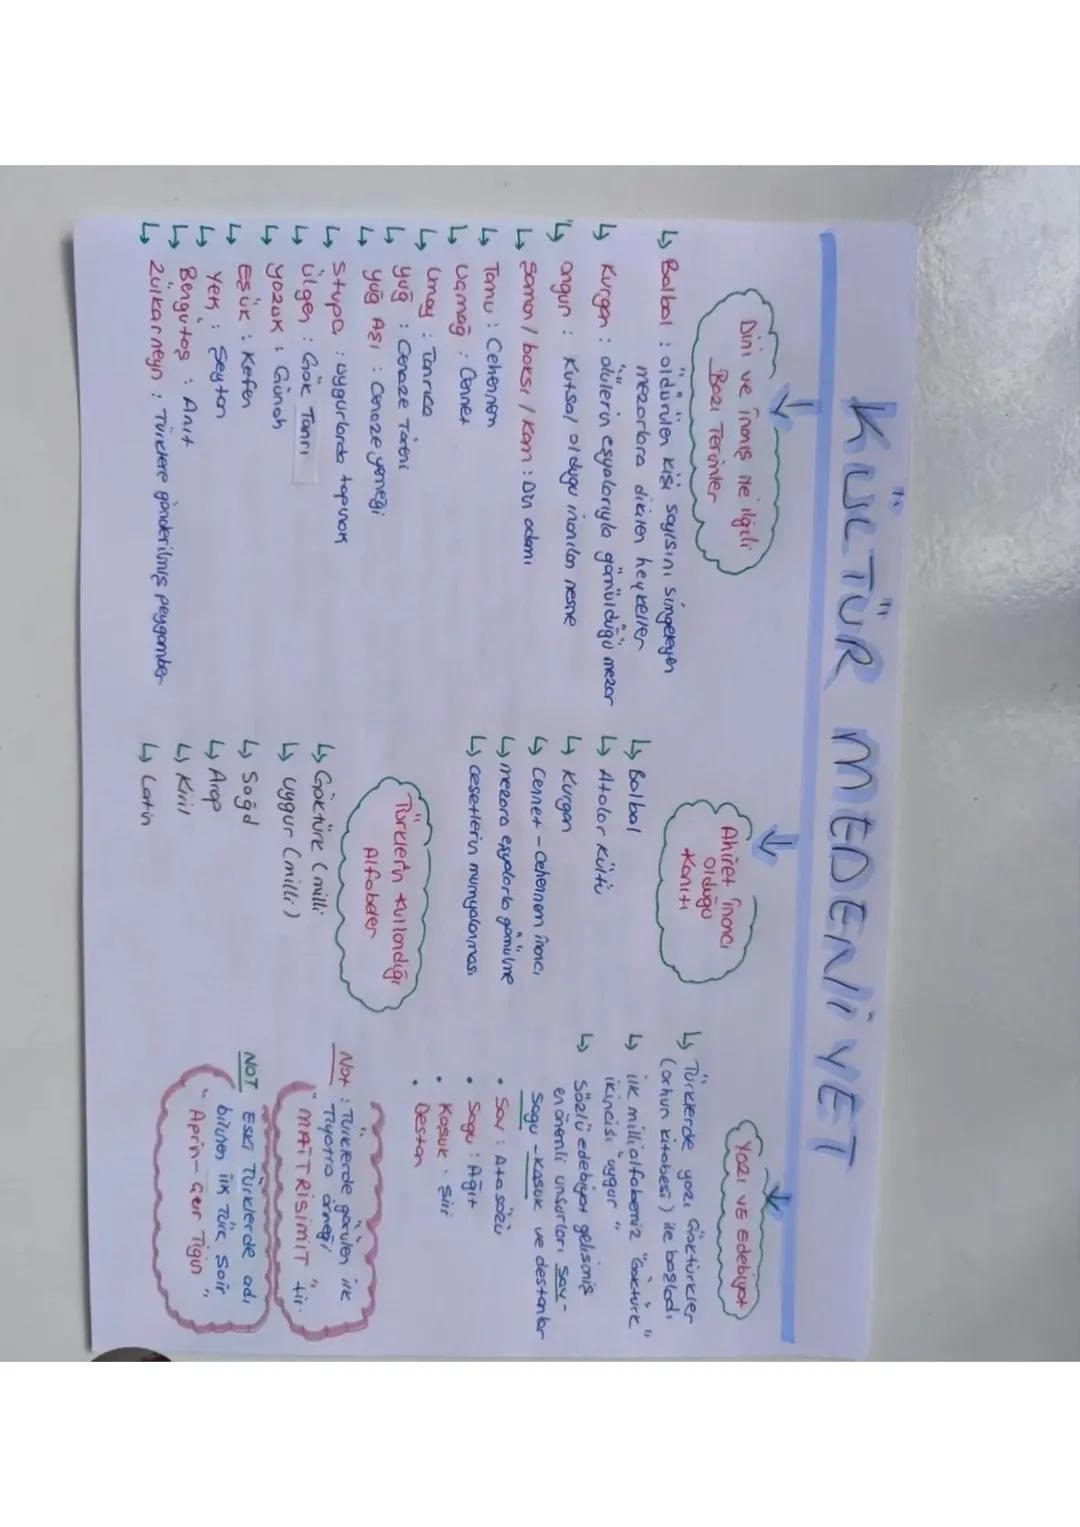 KÜLTÜR MEDENİYET
Dini ve inanış ile ilgili
Bazı Terimler
↳ Balbal : öldürülen kişi sayısını simgeleyen
mezarlara dikilen heykeller
↳ Kurgan : ölülerin eşyalarıyla gömüldüğü mezar
↳ ongun : Kutsal olduğu inanılan nesne
↳ Şaman / baksı / Kam : Din adamı
↳ Tamu : Cehennem
↳ Uçmağ : Cennet
↳ Umay : Tanrıça
↳ yuğ : Cenaze Töreni
↳ yuğ Aşı : Cenaze yemeği
↳ Stupa : uygurlarda tapınak
↳ Ülgen : Gök Tanrı
↳ yazuk : Günah
↳ Eşük : Kefen
↳ Yek : Şeytan
↳ Bengütaş : Anıt
↳ Zülkarneyn : Türklere gönderilmiş peygamber
Ahiret inancı
olduğu
Kanıtı
↳ Balbal
↳ Atalar Kültü
↳ Kurgan
↳ Cennet - Cehennem inancı
↳ mezara eşyalarla gömülme
↳ cesetlerin mumyalanması
Türklerin Kullandığı
Alfabeler
↳ Göktürk (milli
↳ uygur (milli)
↳ Soğd
↳ Arap
↳ Kiril
↳ Latin
Yazı ve Edebiyat
↳ Türklerde yazı Göktürkler
(orhun kitabesi) ile başladı
↳ ilk milli alfabemiz "Göktürk"
ikincisi "uygur"
↳ Sözlü edebiyat gelişmiş
en önemli unsurları Sav -
Sagu - Kosuk ve destanlar
• Sav : Atasözü
• Sagu : Ağıt
• Koşuk : Şiir
• Destan
Not : Türklerde görülen ilk
Tiyatro örneği
"MAİTRİSİMİT" tir.
NOT Eski Türklerde adı
bilinen ilk Türk şair
"Aprin-Çor Tigin"